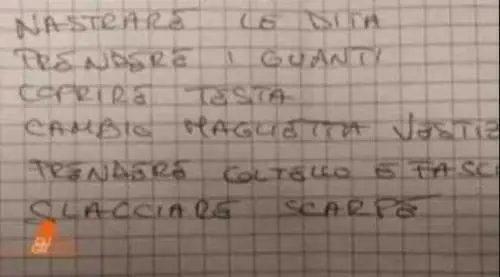 NASTRARE LE DITA
PRENDERE I GUANTI
COPRIRE TESTA
CAMBIO MAGLIETTA VESTIE
PRENDERE COLTELLO E FASC
SLACCIARE SCARPE